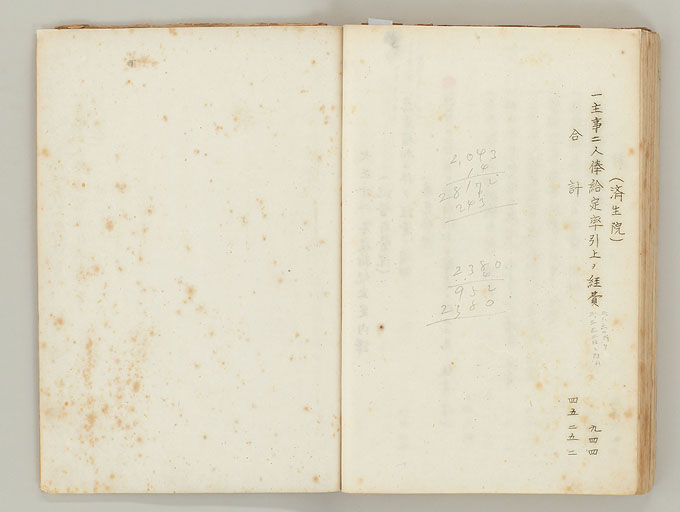 (済生院)
一主事二人俸給定率引上ノ経費 九四四
合計 四五二五二
2,043
14
2817 2
243
2380
952
2380